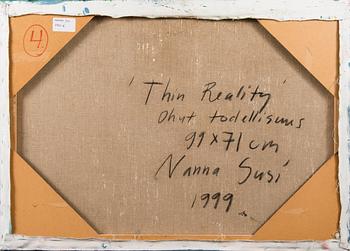 4.
'Thin Reality'
Ohut todellisuus
99 x 71 cm
Nanna Susi
1999.